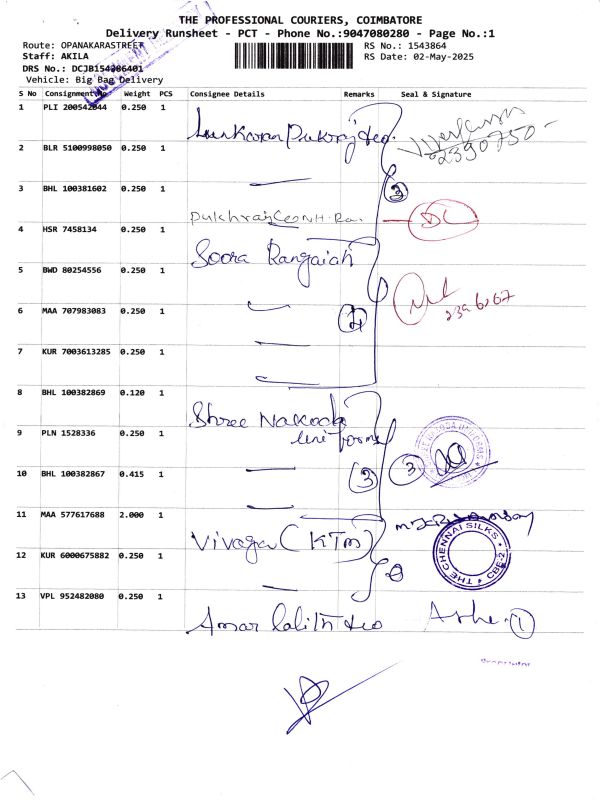 THE PROFESSIONAL COURIERS, COIMBATORE
Delivery Runsheet - PCT - Phone No.:9047080280 - Page No.:1
Route: OPANAKARASTREET
RS No.: 1543864
Staff: AKILA
RS Date: 02-May-2025
DRS No.: DCJB154386401
Vehicle: Big Bag Delivery
S No Consignment No Weight PCS Consignee Details Remarks Seal & Signature
1 PLI 200542844 0.250 1
2390750-
2 BLR 5100998050 0.250 1
3 BHL 100381602 0.250 1
3
DC
4 HSR 7458134 0.250 1
Soora Rangaiah
5 BWD 80254556 0.250 1
6 MAA 707983083 0.250 1
4
7 KUR 7003613285 0.250 1
8 BHL 100382869 0.120 1
Shree Nakoda
9 PLN 1528336 0.250 1
uniforms
10 BHL 100382867 0.415 1
3 3
11 MAA 577617688 2.000 1
Vivaga (KTM)
THE CHENNAI SILKS CBE-2
12 KUR 6000675882 0.250 1
13 VPL 952482080 0.250 1
Amar Lalith
1